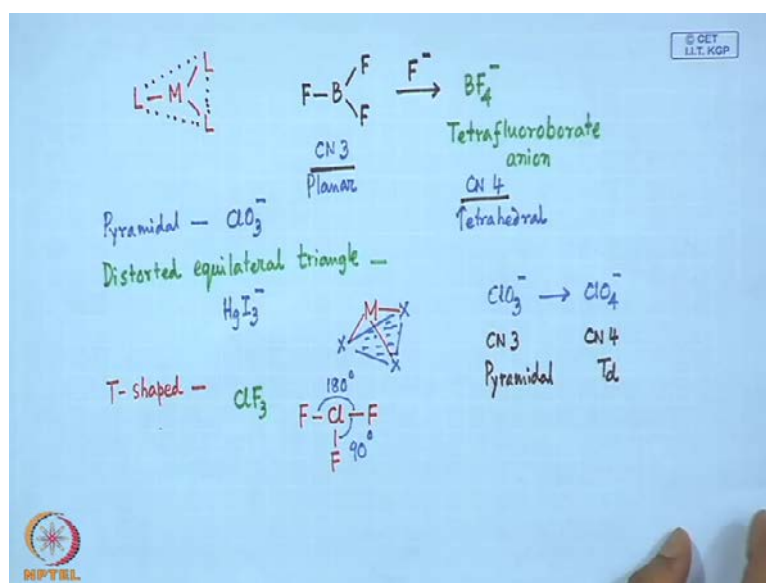 © CET
I.I.T. KGP
L
L – M
L
F
F – B
F
F⁻
BF₄⁻
Tetrafluoroborate
anion
CN 3
Planar
CN 4
Tetrahedral
Pyramidal – ClO₃⁻
Distorted equilateral triangle –
HgI₃⁻
M – X
X
X
ClO₃⁻ → ClO₄⁻
CN 3 CN 4
Pyramidal Td
T-shaped – ClF₃
180°
F – Cl – F
90°
F
NPTEL